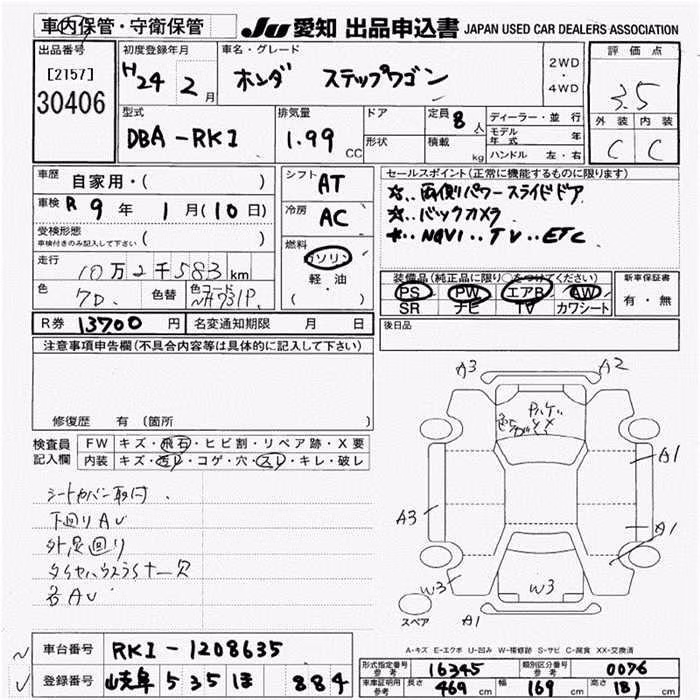 車内保管・守衛保管
JU 愛知 出品申込書 JAPAN USED CAR DEALERS ASSOCIATION
出品番号
[2157]
30406
初度登録年月
H24 2月
車名・グレード
ホンダ ステップワゴン
2WD・4WD
評価点
3.5
外装 内装
C C
型式
DBA-RK1
排気量
1.99 CC
ドア
形状
定員 8人
積載 kg
ディーラー・並行
モデル年式 年
ハンドル 左・右
車歴 自家用・( )
車検 R9年 1月(10日)
受検形態
車検付きのみ記入して下さい ( )
走行 10万2千583km
色 色替 色コード
NH731P
シフト AT
冷房 AC
燃料
ガソリン
軽・油
( )
セールスポイント(正常に機能するものに限ります)
☆..両側パワースライドドア
☆..バックカメラ
☆..NAVI..TV..ETC
装備品(純正品に限り○をつけてください)
PS PW エアB AW
SR ナビ TV カワシート
新車保証書
有・無
R券 13700円 名変通知期限 月 日
後日品
注意事項申告欄(不具合内容等は具体的に記入して下さい)
修復歴 有(箇所 )
検査員記入欄
FW キズ・飛石・ヒビ割・リペア跡・X要
内装 キズ・汚レ・コゲ・穴・スレ・キレ・破レ
シートカバー取付
下回りAU
各AU
A3 A2
A1
A3
A1
W3 W3
A1
スペア
A-キズ E-エクボ U-凹み W-補修跡 S-サビ C-腐食 XX-交換済
車台番号 RK1-1208635
登録番号 岐阜 535 ほ 884
形式指定番号 参考 16345 類別区分番号 参考 0076
車庫証明用 参考 長さ 469cm 幅 169cm 高さ 181cm